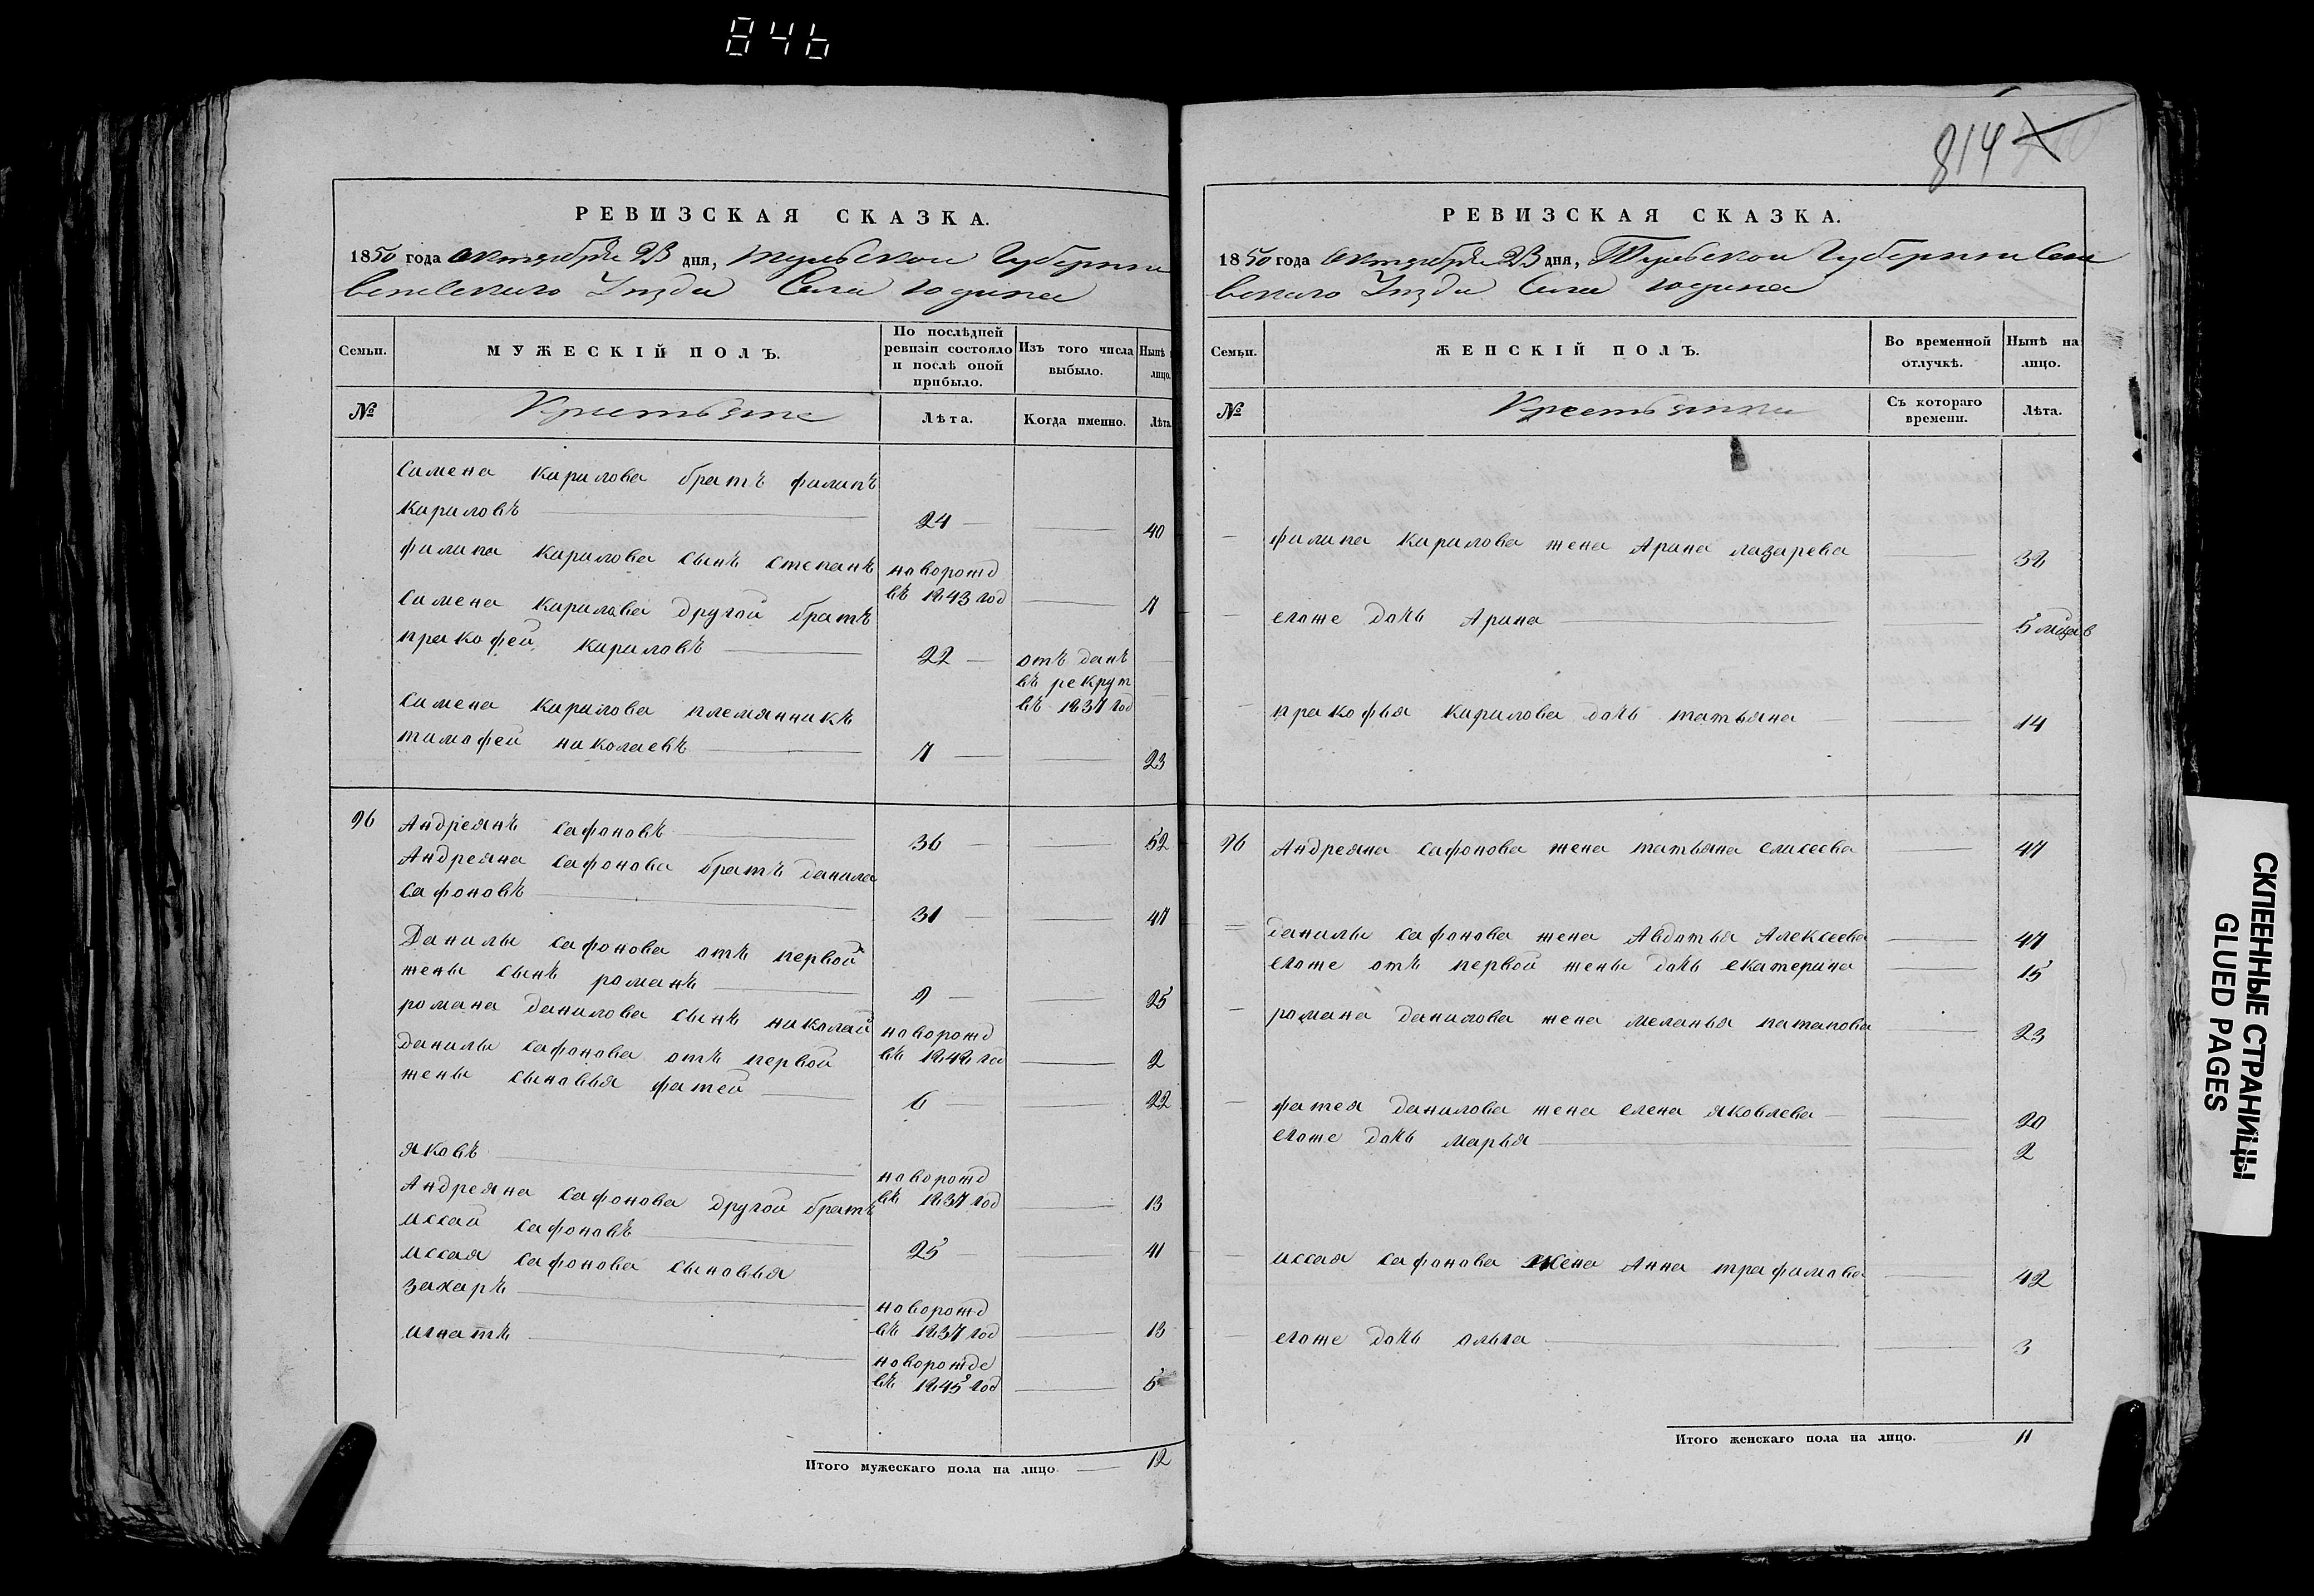 846
РЕВИЗСКАЯ СКАЗКА.
1850 года октября 23 дня, Тульской Губернии
Веневскаго Уезда Села Юдина
Семьи.
МУЖЕСКІЙ ПОЛЪ.
По послѣдней ревизіи состояло и послѣ оной прибыло.
Изъ того числа выбыло.
Нынѣ лицо.
№
Крестьяне
Лѣта.
Когда именно.
Лѣта.
Симена Кирилова братъ филипъ
Кириловъ 24 40
филипа Кирилова сынъ степанъ новорожд
въ 1843 год 7
Симена Кирилова другой братъ
пракофей Кириловъ 22 отъ данъ
въ рекрут
въ 1837 год
Симена Кирилова племянникъ
тимофей николаевъ 7 23
96 Андреянъ сафоновъ 36 52
Андреяна сафонова братъ данила
сафоновъ 31 47
Данилы сафонова отъ первой
жены сынъ романъ 9 25
романа данилова сынъ николай новорожд
въ 1848 год 2
данилы сафонова отъ первой
жены сыновья фатей 6 22
яковъ новорожд
въ 1837 год 13
Андреяна сафонова другой братъ
иссай сафоновъ 25 41
иссая сафонова сыновья
захаръ новорожд
въ 1837 год 13
игнатъ новорожде
въ 1845 год 5
Итого мужескаго пола на лицо. 12
814
РЕВИЗСКАЯ СКАЗКА.
1850 года октября 23 дня, Тульской Губернии Вене
вскаго Уезда Села Юдина
Семьи.
ЖЕНСКІЙ ПОЛЪ.
Во временной отлучкѣ.
Нынѣ на лицо.
№
Крестьянки
Съ котораго времени.
Лѣта.
филипа Кирилова жена Арина лазарева 38
егоже дочь Арина 5 мцов
пракофья Кирилова дочь татьяна 14
96 Андреяна сафонова жена татьяна елисеева 47
данилы сафонова жена Авдотья Алексеева 47
егоже отъ первой жены дочь екатерина 15
романа данилова жена меланья патапова 23
фатея данилова жена елена яковлева 20
егоже дочь марья 2
иссая сафонова жена Анна трафимова 42
егоже дочь ольга 3
Итого женскаго пола на лицо. 11
СКЛЕЕННЫЕ СТРАНИЦЫ
GLUED PAGES